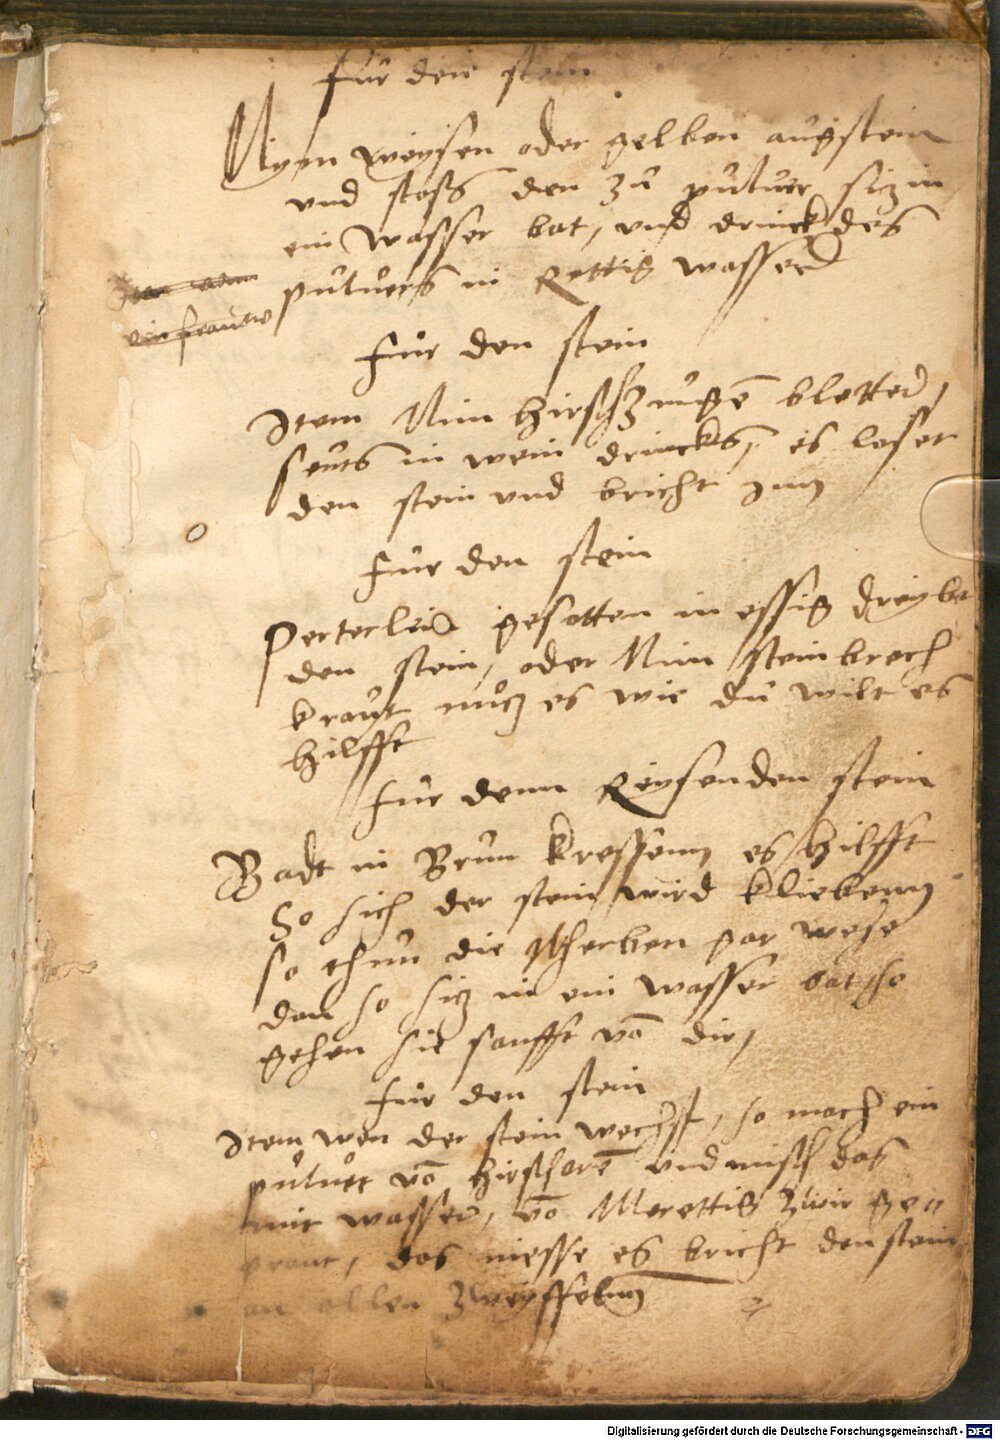 Für den stein
Nym weysen oder gelben augstein
und stoss den zu puluer sitz in
ein wasser bat, und drinck des
puluers in Rettig wasser
ein frauw
Für den stein
Item Nim hirschzungē bletter,
seuts in wein drincks, es loset
den stein und bricht Inn
Für den stein
Peterlein gesotten in essig dreybt
den stein, oder Nim steinbrech
kraut nutz es wie du wilt es
hilfft
Für denn Reysenden stein
Badt in Brun kressenn es hilfft
So sich der stein wird kliebenn
so thun die scherben gar wehe
dan so sitz in ein wasser bat, so
gehen sie sanfft vō dir,
Für den stein
Item wen der stein wechst, so mach ein
puluer vō hirschorē und misch das
mit wasser, vō Merettig zwir ge
prant, das niesse es bricht den stein
an allen zweyffelnn
Digitalisierung gefördert durch die Deutsche Forschungsgemeinschaft - DFG